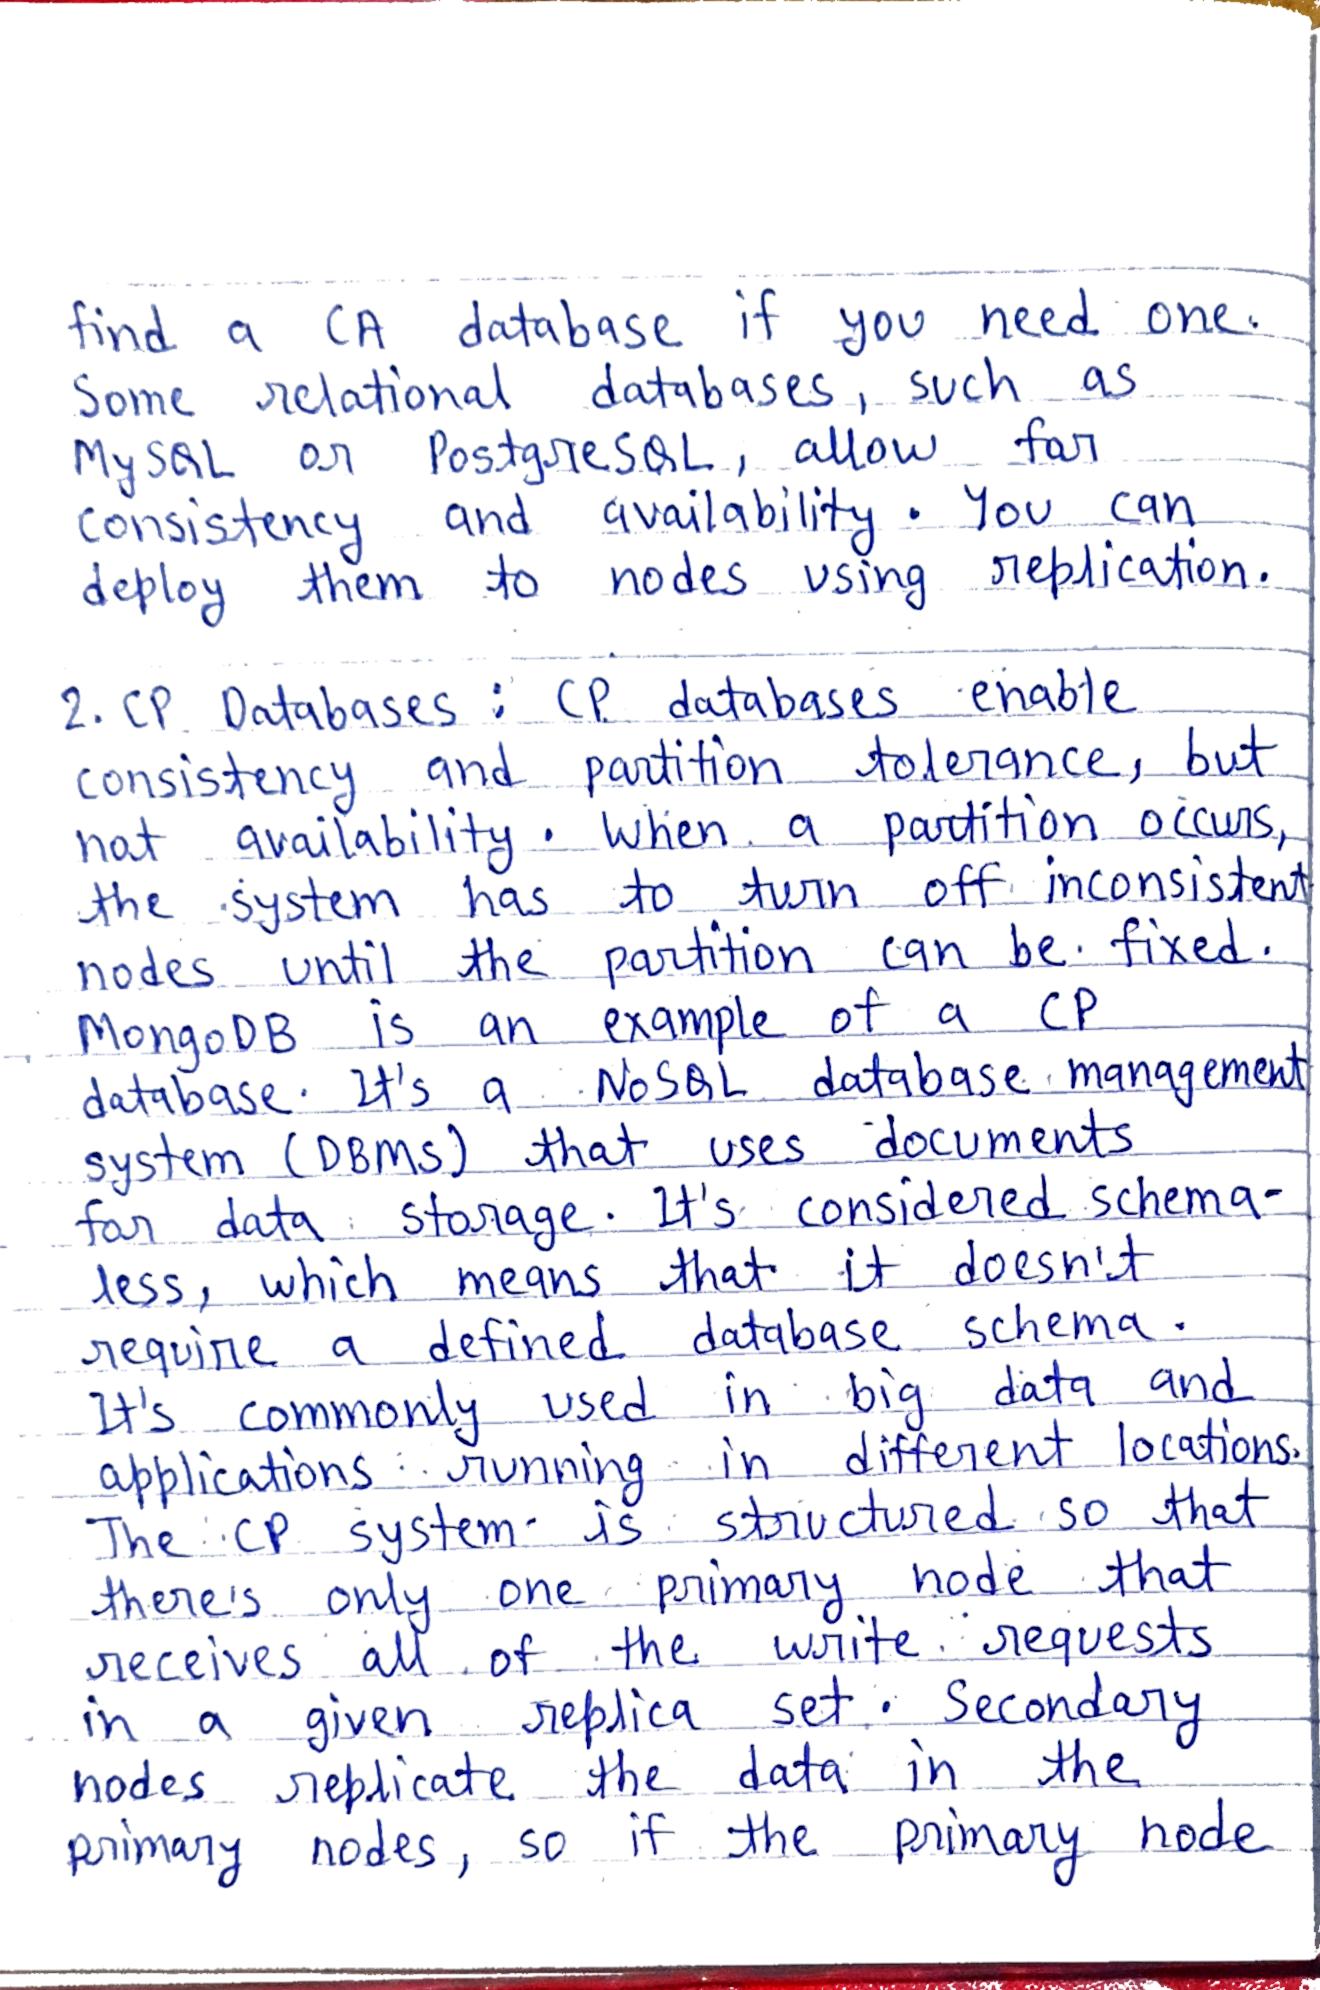 find a CA database if you need one.
Some relational databases, such as
MySQL or PostgreSQL, allow for
consistency and availability. You can
deploy them to nodes using replication.
2. CP Databases : CP databases enable
consistency and partition tolerance, but
not availability. When a partition occurs,
the system has to turn off inconsistent
nodes until the partition can be fixed.
MongoDB is an example of a CP
database. It's a NoSQL database management
system (DBMS) that uses documents
for data storage. It's considered schema-
less, which means that it doesn't
require a defined database schema.
It's commonly used in big data and
applications running in different locations.
The CP system is structured so that
there's only one primary node that
receives all of the write requests
in a given replica set. Secondary
nodes replicate the data in the
primary nodes, so if the primary node